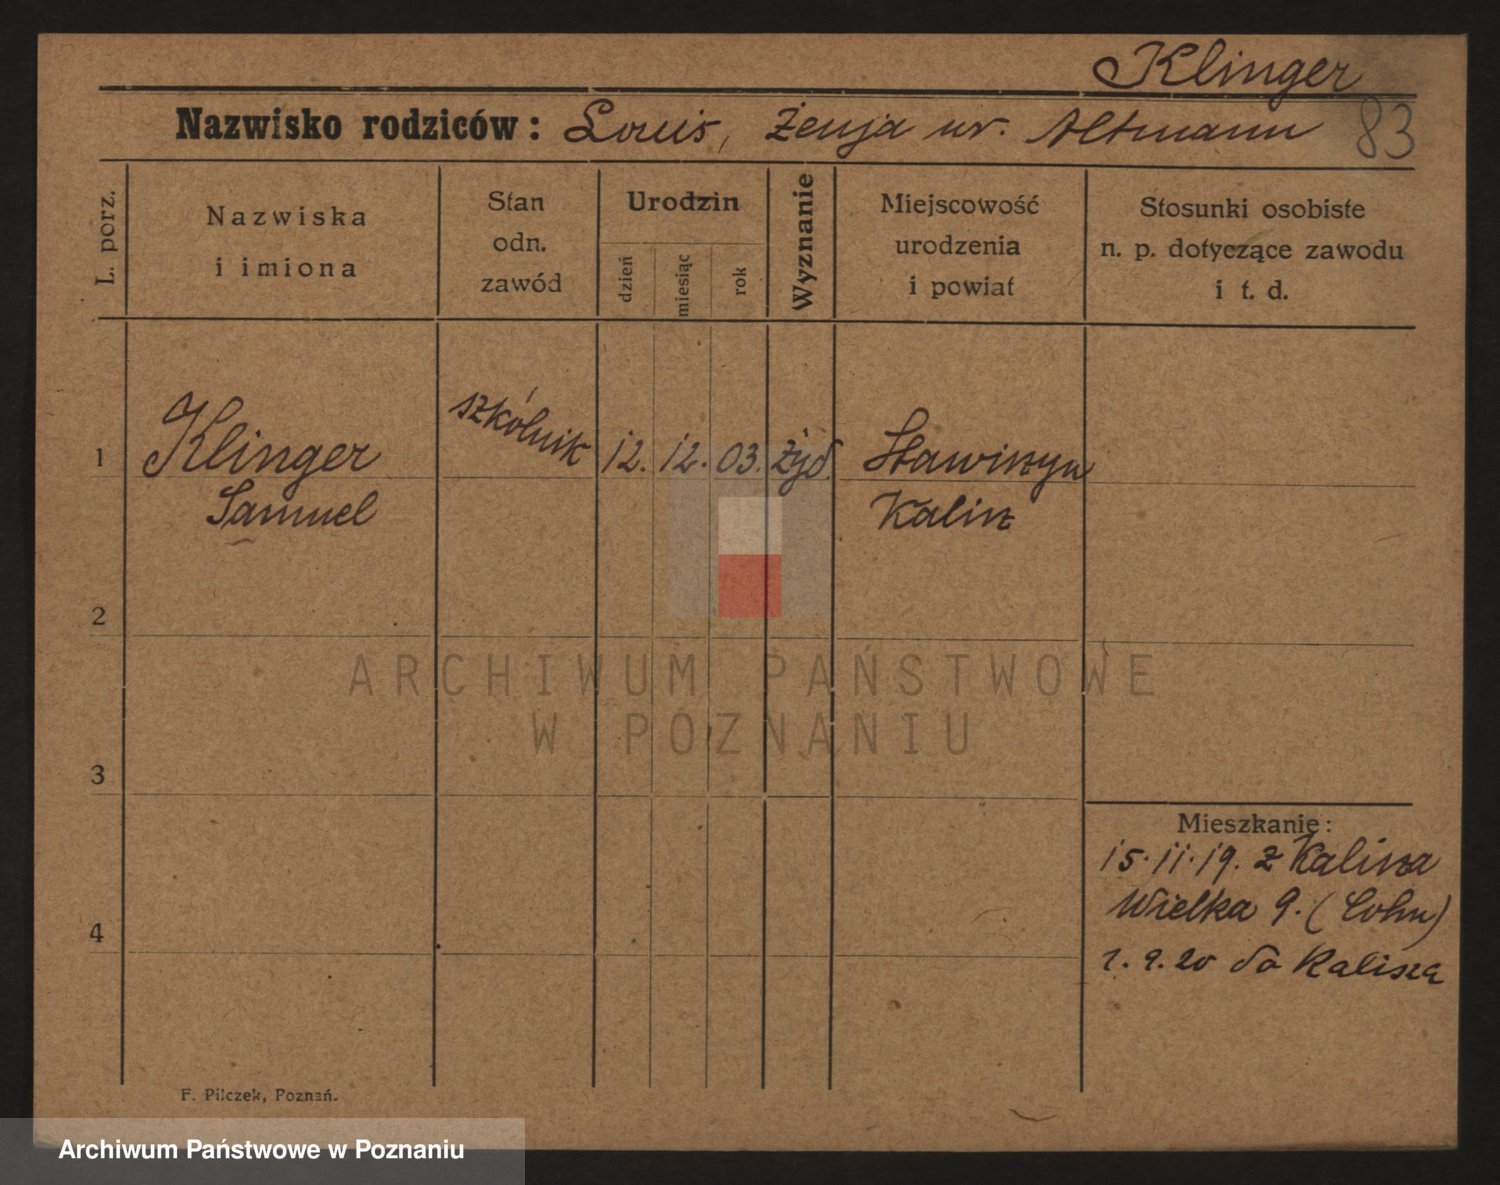 Klinger
Nazwisko rodziców: Louis, Żenja ur. Altmann 83
L. porz.
Nazwiska i imiona
Stan odn. zawód
Urodzin
dzień
miesiąc
rok
Wyznanie
Miejscowość urodzenia i powiat
Stosunki osobiste n. p. dotyczące zawodu i t. d.
1 Klinger szkólnik 12. 12. 03. żyd. Stawiszyn
Samuel Kalisz
2
3
4
ARCHIWUM PAŃSTWOWE
W POZNANIU
Mieszkanie:
15.11.19. z Kalisza
Wielka 9. (Cohn)
1.9.20 do Kalisza
F. Pilczek, Poznań.
Archiwum Państwowe w Poznaniu